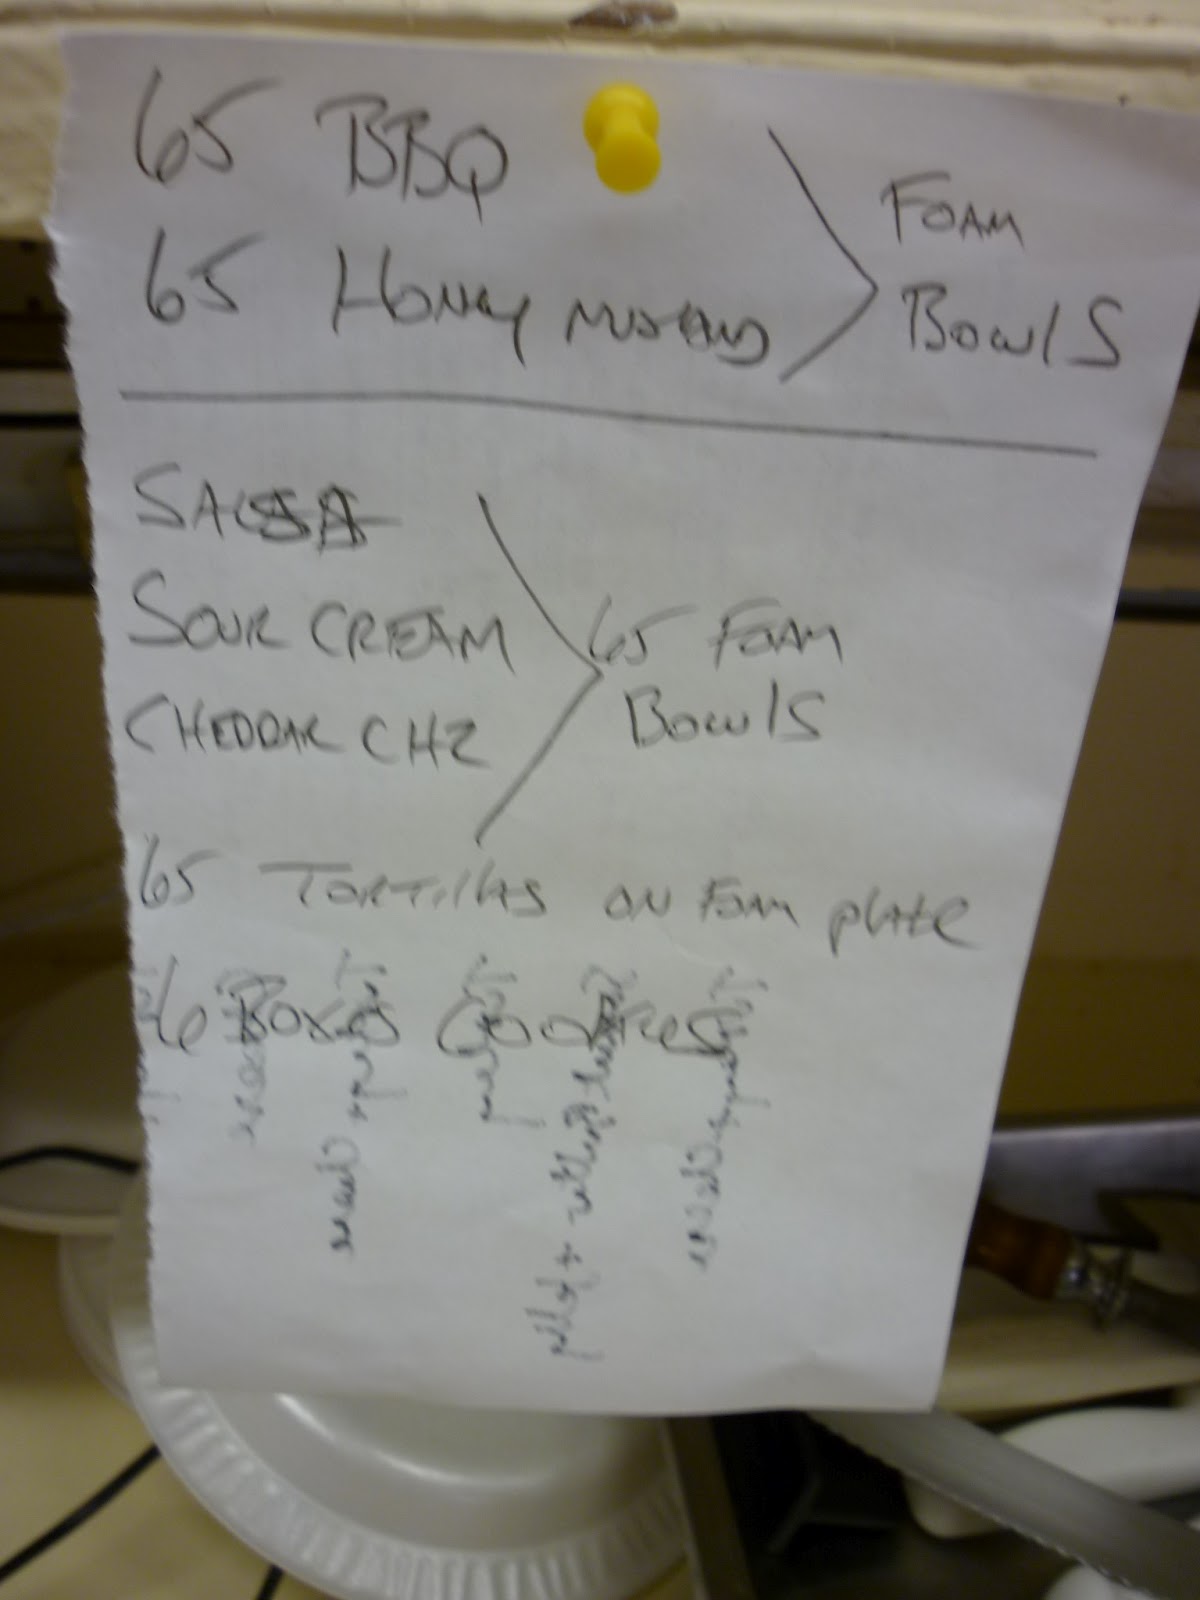 65 BBQ
65 Honey mustard
FOAM
BowlS
SALSA
SOUR CREAM
CHEDDAR CHZ
65 FOAM
BowlS
65 TORTILLAS ON FOAM plate
Boxes Cookies